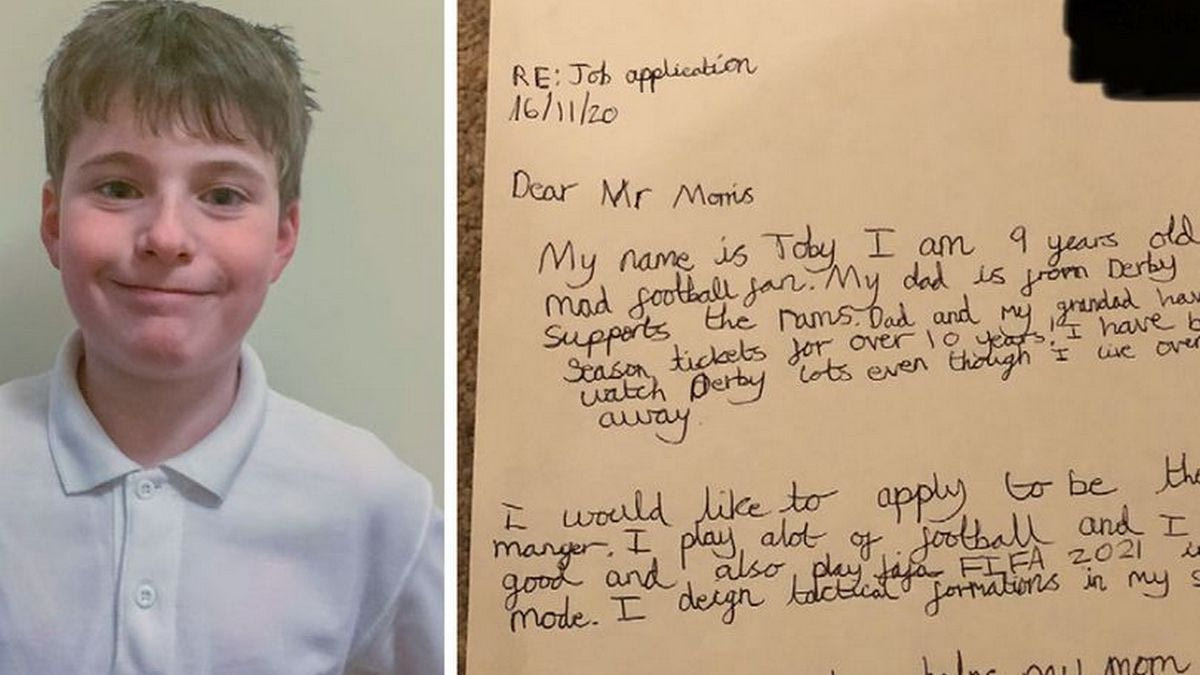 RE: Job application
16/11/20
Dear Mr Morris
My name is Toby I am 9 years old
mad football fan. My dad is from Derby
supports the rams. Dad and my grandad hav
Season tickets for over 10 years! I have b
watch Derby lots even though I live over
away.
I would like to apply to be the
manger. I play alot of football and I
good and also play fifa FIFA 2021 in
mode. I deign tactical formations in my s
helps my mom